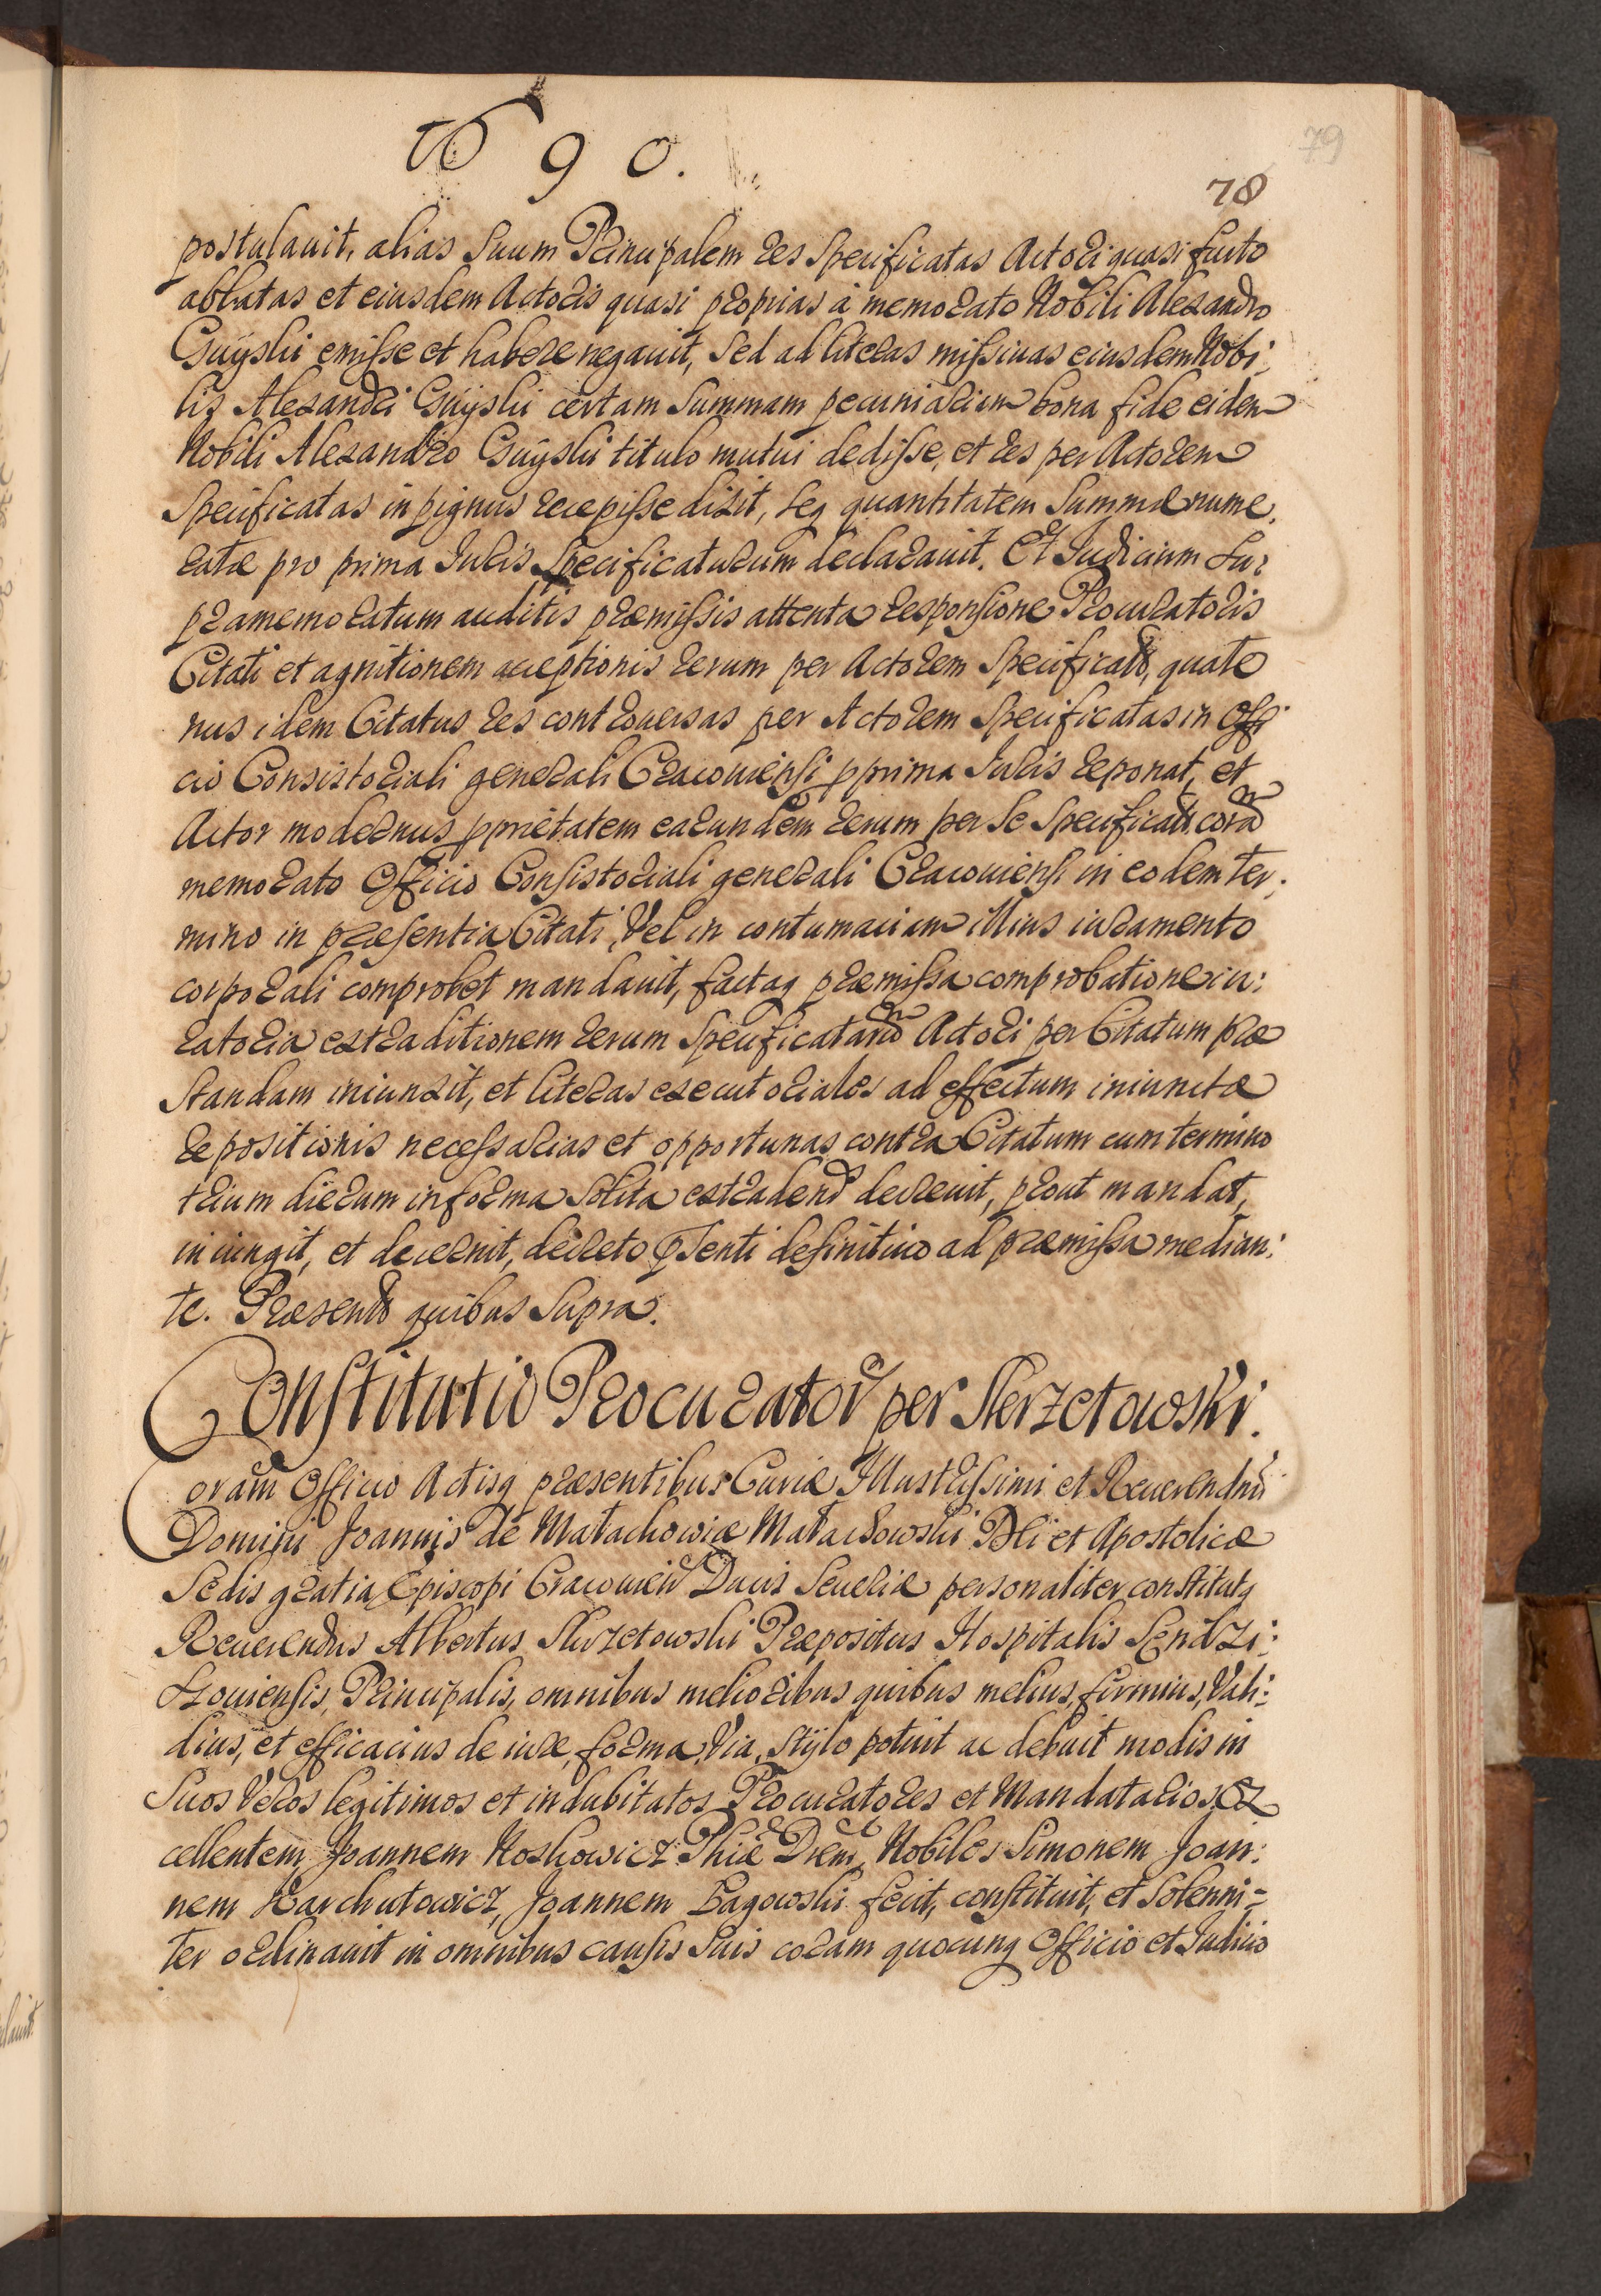 1690.
79
78
postulauit, alias Suum Principalem res Specificatas Actori quasi furto
ablatas et eiusdem Actoris quasi proprias à memorato Nobili Alexandro
Guÿski emisse et habere negauit, Sed ad literas missiuas eiusdem Nobi:
lis Alexandri Guÿski certam Summam pecuniariam bona fide eidem
Nobili Alexandro Guÿski titulo mutui dedisse, et res per Actorem
Specificatas in pignus recepisse dixit, seq quantitatem Summæ nume:
ratæ pro prima Iuris Specificaturum declarauit. Et Iudicium Su:
pramemoratum auditis præmissis attenta responsione Procuratoris
Citati et agnitionem acceptionis rerum per Actorem Specificatarum, quate
nus idem Citatus res controuersas per Actorem Specificatas in Offi:
cio Consistoriali generali Cracouiensi p prima Iuris reponat, et
Actor modernus pprietatem earundem rerum per Se Specificatarum corã
memorato Officio Consistoriali generali Cracouiensi in eodem ter:
mino in præsentia Citati, Vel in contumaciam illius iuramento
corporali comprobet mandauit, factaq præmissa comprobatione iu:
ratoria extraditionem rerum Specificatarum Actori per Citatum præ
standam iniunxit, et literas executoriales ad effectum iniunctæ
repositionis necessarias et opportunas contra Citatum cum termino
trium dierum in forma Solita extradend decreuit, prout mandat,
iniungit, et decernit, decreto pnsenti definitiuo ad præmissa median:
te. Præsentibus quibus Supra.
Constitutio Procurator per Skrzetowski.
Coram Officio Actisq præsentibus Curiæ Illustrissimi et Reuerendmi
Domini Joannis de Małachowice Małachowski Dei et Apostolicæ
Sedis gratia Episcopi Cracouien Ducis Seueriæ personaliter constitutq
Reuerendus Albertus Skrzetowski Præpositus Hospitalis Sendzi:
szouiensis, Principalis, omnibus melioribus quibus melius, firmius, Vali:
dius, et efficacius de iure, forma, Via, Stÿlo potuit ac debuit modis in
Suos Veros legitimos et indubitatos Procuratores et Mandatarios, Ex
cellentem Joannem Roskowicz Phiæ Drem, Nobiles Simonem Joan:
nem Karchutowicz, Joannem Łagowski fecit, constituit, et Solenni=
ter ordinauit in omnibus causis Suis coram quocunq Officio et Iudicio